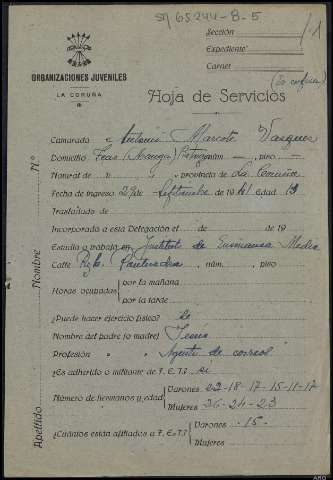 sg 65244-8-5
Sección
Expediente
Carnet
ORGANIZACIONES JUVENILES
LA CORUÑA
Hoja de Servicios
Camarada Antonio Marcote Vasquez
Domicilio núm. — , piso —
Natural de , provincia de La Coruña
Fecha de ingreso 29 de Septiembre de 1941 edad 13
Trasladado de
Incorporado a esta Delegación el de de 19
Estudia o trabaja en Institut de Enseñanza Media
Calle , núm. , piso
Horas ocupadas
por la mañana
por la tarde
¿Puede hacer ejercicio físico?
Nombre del padre (o madre) Jesus
Profesión Agente de correos
¿Es adherido o militante de F. E. T.? si
Número de hermanos y edad
Varones 22-18-17-15-11-17
Mujeres 26-24-23
¿Cuántos están afiliados a F. E. T.?
Varones -15-
Mujeres
N.º
Nombre
Apellido